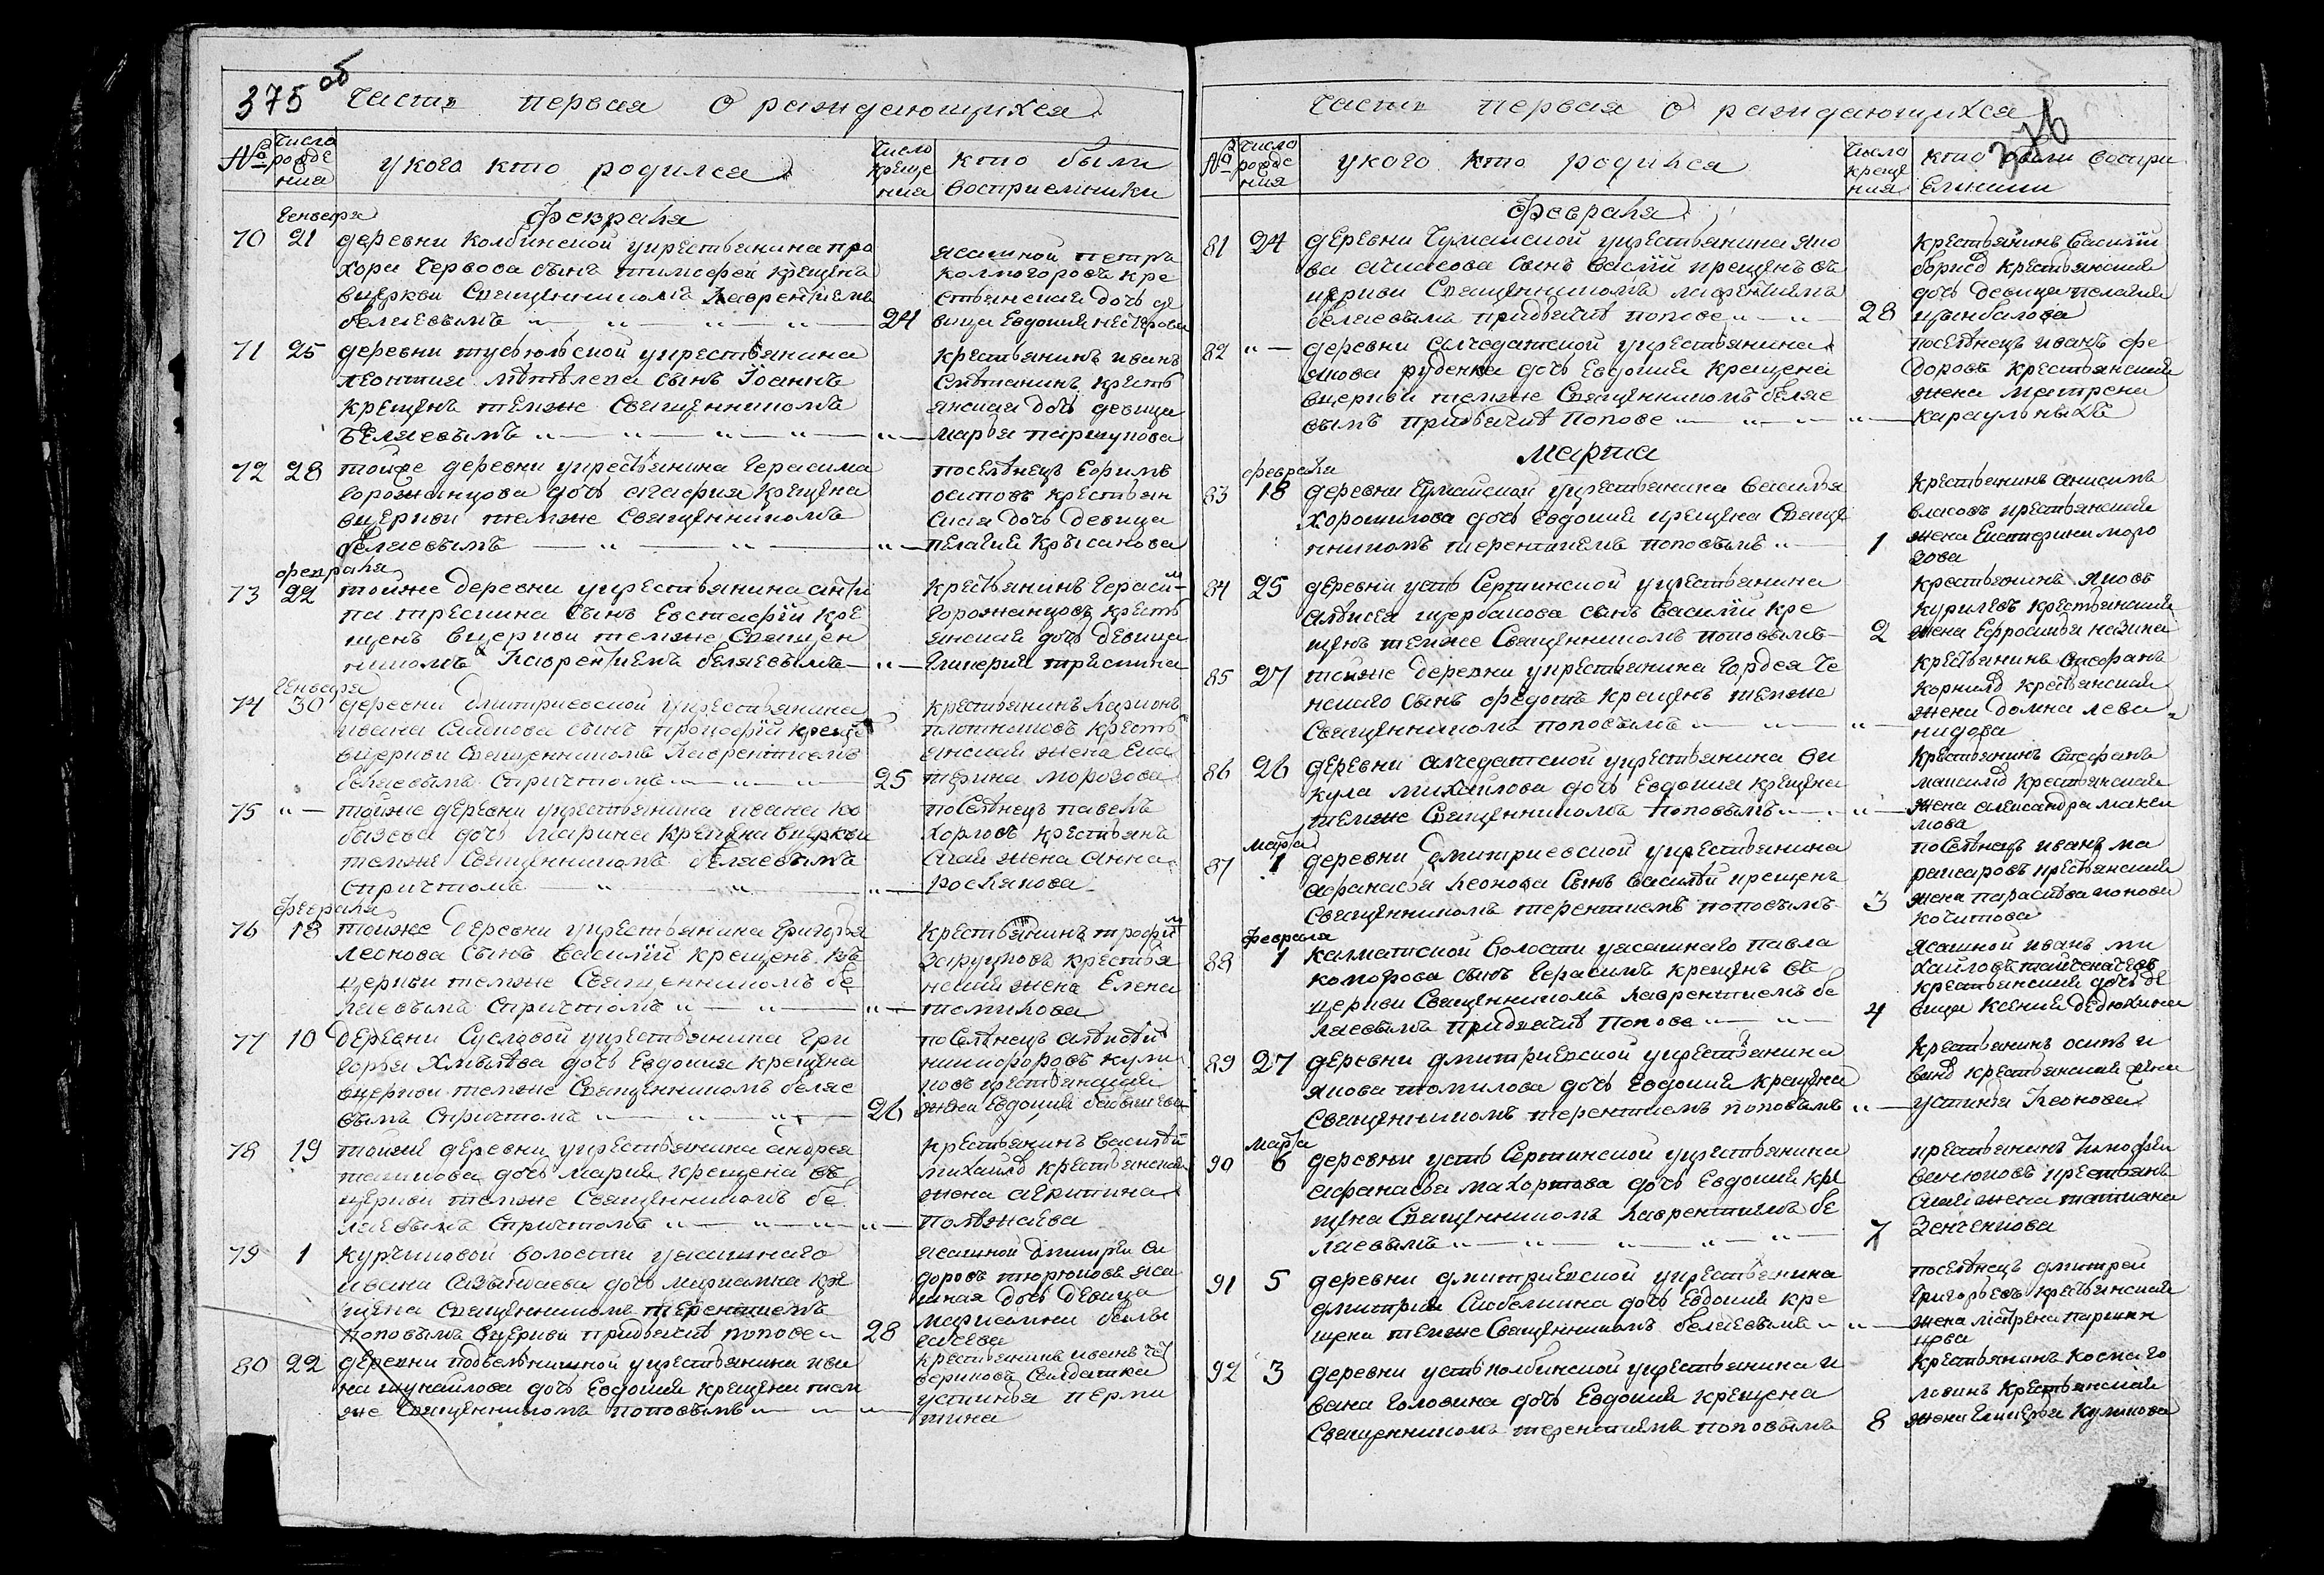 375 об
Часть первая О раждающихся
№ Число рожде ния
у кого кто родился
Число креще ния
кто были восприемники
Генваря
Февраля
70 21 деревни Колбинской укрестьянина про
хора Червова сынъ тимофей крещенъ
вцеркви Священникомъ Лаврентиемъ
беляевымъ 24
ясашной петръ
колмогоровъ кре
стьянская дочь де
вица Евдокия нестерова
71 25 деревни тусюльской укрестьянина
леонтия сынъ Iоаннъ
крещенъ темже Священникомъ
Беляевымъ
крестьянинъ иванъ
Сметанинъ кресть
янская дочь девица
марья паршукова
72 28 тойже деревни укрестьянина Герасима
Горожанцова дочь агафия крещена
вцеркви темже Священникомъ
беляевымъ
поселенецъ Ефимъ
осиповъ крестьян
ская дочь девица
пелагия Крысанова
февраля
73 22 тойже деревни укрестьянина анти
па трескина Сынъ Евстафiй кре
щенъ вцеркви темже Священ
никомъ Лаврентиемъ беляевымъ
крестьянинъ Герасим
Горожанцовъ кресть
янская дочь девица
Гликерия трескина
Генваря
74 30 деревни дмитриевской укрестьянина
ивана сынъ прокофiй креще
вцеркви Священникомъ Лаврентиемъ
беляевымъ Спричтомъ 25
крестьянинъ Ларионъ
плотниковъ кресть
янская жена Ека
терина морозова
75 тойже деревни укрестьянина ивана ко
базева дочь марина крещена вцеркви
темже Священникомъ беляевымъ
спричтомъ
поселенецъ павелъ
Хорловъ крестьянъ
ская жена Анна
рослякова
февраля
76 18 тойже деревни укрестьянина григорья
леонова Сынъ Василiй крещенъ въ
церкви темже Священникомъ бе
ляевымъ Спричтомъ
крестьянинъ трофим
крестья
нская жена Елена
томилова
77 10 деревни Сусловой укрестьянина Гри
горья дочь Евдокия крещена
вцеркви темже Священникомъ беляе
вымъ Спричтомъ 26
поселенецъ алексей
никифоровъ кули
ковъ крестьянская
жена Евдокия
78 19 тойже деревни укрестьянина андрея
дочь Мария крещена въ
церкви темже Священникомъ бе
ляевымъ Спричтомъ
крестьянинъ Василей
михайлов крестьянская
жена акилина
полежаева
79 1 курчиковой волости уясашнаго
ивана дочь мариамна кре
щена священникомъ терентиемъ
поповымъ вцеркви придьячке попове 28
ясашной дмитрий Си
доровъ тюрюковъ яса
шная дочь девица
мариамна
80 22 деревни подъельнишной укрестьянина ива
на дочь Евдокия крещена тем
же Священникомъ поповымъ
крестьянинъ иванъ че
вериковъ Салдатка
устинья перми
тина

376
Часть первая О раждающихся
№ Число рожде ния
у кого кто родился
Число креще ния
кто были воспри емники
Февраля
81 24 деревни Чумайской укрестьянина яко
ва Сынъ Василiй крещенъ въ
церкви Священникомъ лаврентиемъ
беляевымъ придьячке попове 28
крестьянинъ Василiй
борисов крестьянская
дочь девица пелагия
цынбалова
82 деревни алчедатской укрестьянина
якова руденка дочь Евдокия крещена
вцеркви темже Священникомъ беляе
вымъ придьячке Попове
поселенецъ иванъ фе
доровъ крестьянская
жена матрена
караульныхъ
Марта
февраля
83 18 деревни Чумайской укрестьянина Василья
Хорошилова дочь Евдокия крещена Священ
никомъ терентиемъ поповымъ 1
крестьянинъ анисимъ
власовъ крестьянская
жена Екатерина моро
зова
84 25 деревни усть Сертинской укрестьянина
алексея щербакова сынъ василiй кре
щенъ темже Священникомъ поповымъ 2
крестьянинъ яковъ
куриловъ крестьянская
жена Ефросинья назина
85 27 тойже деревни укрестьянина Гордея Че
Сынъ федотъ крещенъ темже
Священникомъ поповымъ
крестьянинъ Стефанъ
Корнилов крестьянская
жена домна леви
нидова
86 26 деревни алчедатской укрестьянина Ви
кула михайлова дочь Евдокия крещена
темже Священникомъ поповымъ
крестьянинъ Стефанъ
максимов крестьянская
жена александра макси
мова
марта
87 1 деревни дмитриевской укрестьянина
афанасья леонова Сынъ Василей крещенъ
Священникомъ терентиемъ поповымъ 3
поселенецъ иванъ ма
каровъ крестьянская
жена парасковья
кочитова
февраля
88 1 калматской Волости уясашнаго павла
сынъ Герасимъ крещенъ въ
церкви Священникомъ лаврентиемъ бе
ляевымъ придьячке попове 4
ясашной иванъ ми
хайловъ
крестьянская дочь де
вица Ксения Дедюхина
89 27 деревни дмитриевской укрестьянина
якова томилова дочь Евдокия крещена
Священникомъ терентиемъ поповымъ
крестьянинъ осипъ и
ванов крестьянская жена
устинья Леонова
марта
90 6 деревни усть Сертинской укрестьянина
афанасья махортова дочь Евдокия кре
щена Священникомъ лаврентиемъ бе
ляевымъ 7
крестьянинъ тимофей
крестьянъ
ская жена татиана
Зенченкова
91 5 деревни дмитриевской укрестьянина
дмитрия Скобелкина дочь Евдокия кре
щена темже Священникомъ беляевымъ
поселенецъ дмитрей
Григорьевъ крестьянская
жена матрена паршин
цова
92 3 деревни усть колбинской укрестьянина и
вана Головина дочь Евдокия крещена
Священникомъ терентиемъ поповымъ 8
крестьянинъ Косма го
ловинъ крестьянская
жена куликова